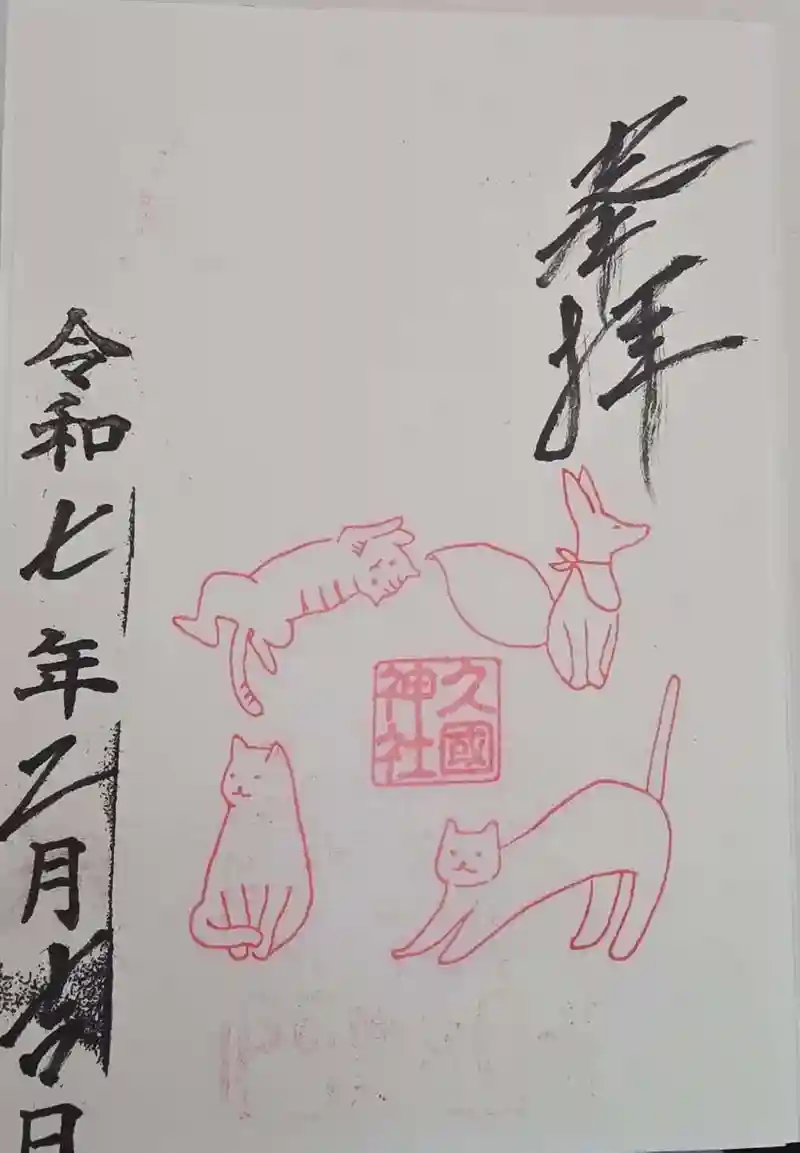 奉拝
久國
神社
令和七年二月吉日